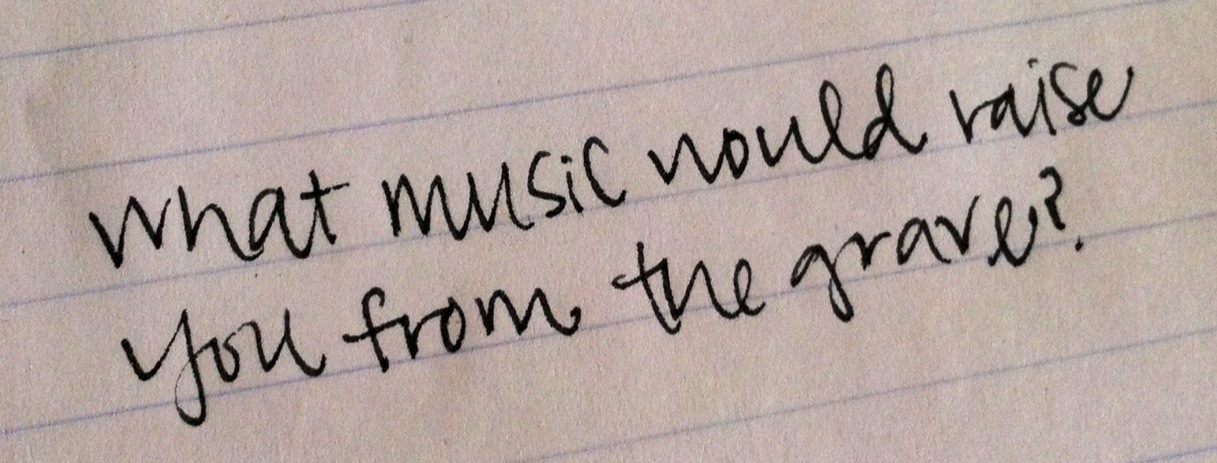 What music would raise
you from the grave?